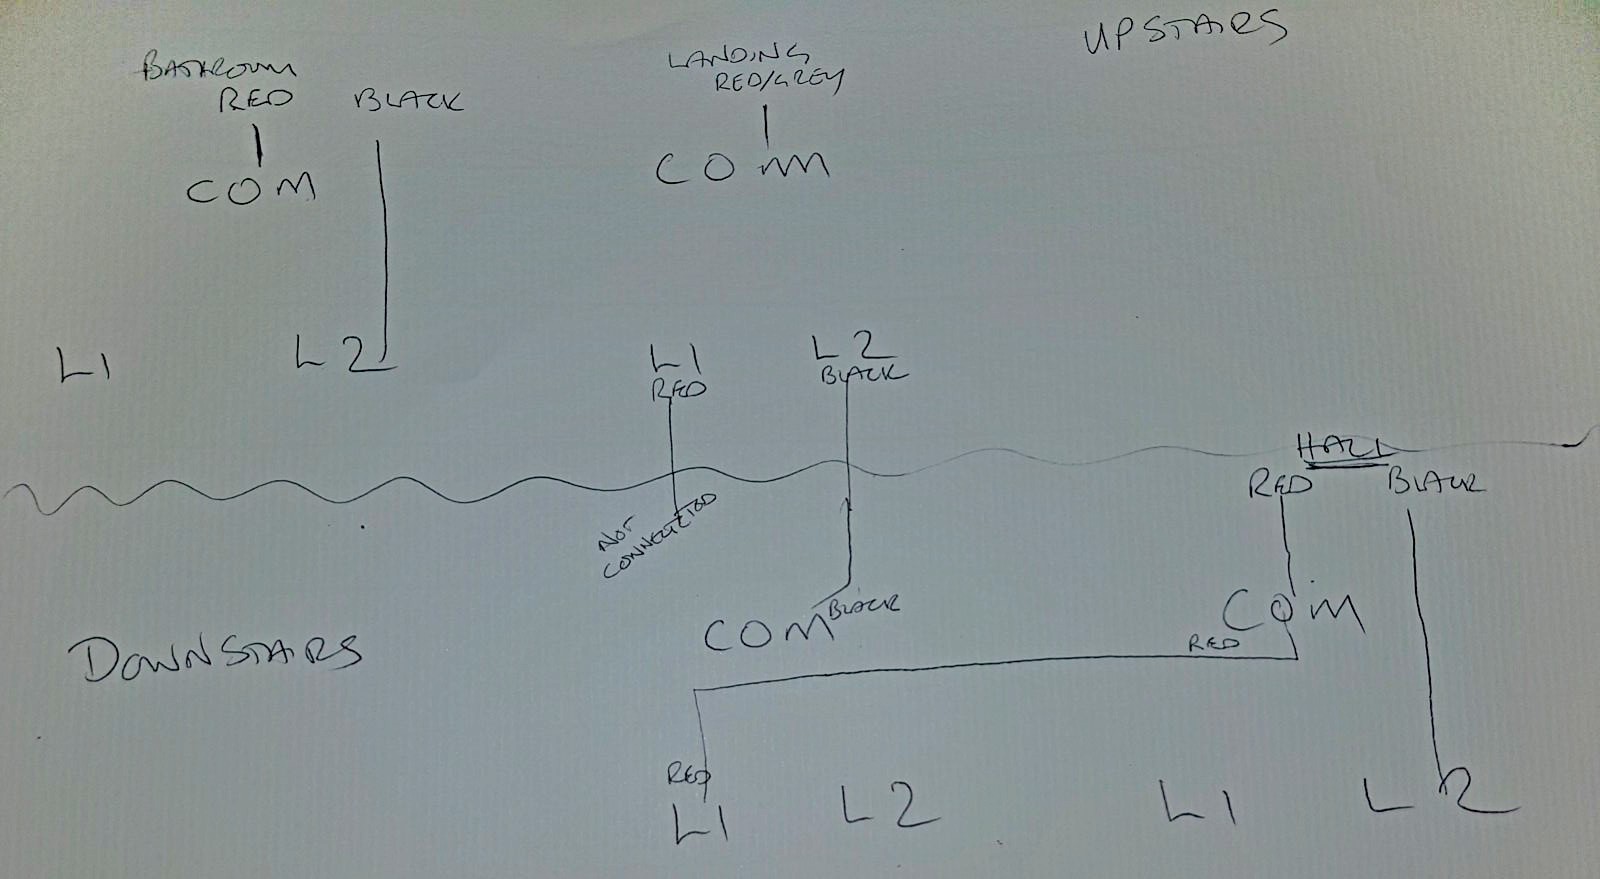 UPSTAIRS
BATHROOM
RED BLACK
COM
L1 L2
LANDING
RED/GREY
COM
L1 L2
RED BLACK
NOT
CONNECTED
HALL
RED BLACK
COM
RED
DOWNSTAIRS
COM BLACK
RED
L1 L2
L1 L2